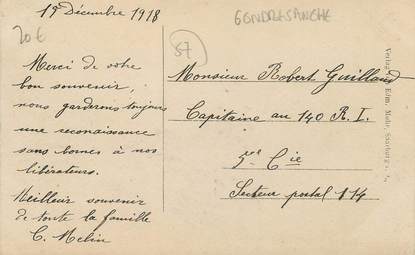 19 Décembre 1918
GONDRESANCHE
20€
57
Merci de votre
bon souvenir,
nous garderons toujours
une reconaissance
sans bornes à nos
libérateurs.
Meilleur souvenir
de toute la famille
C. Melin
Monsieur Robert Guilland
Capitaine au 140 R. I.
5ème Cie
Secteur postal 114
Verlag Edm.